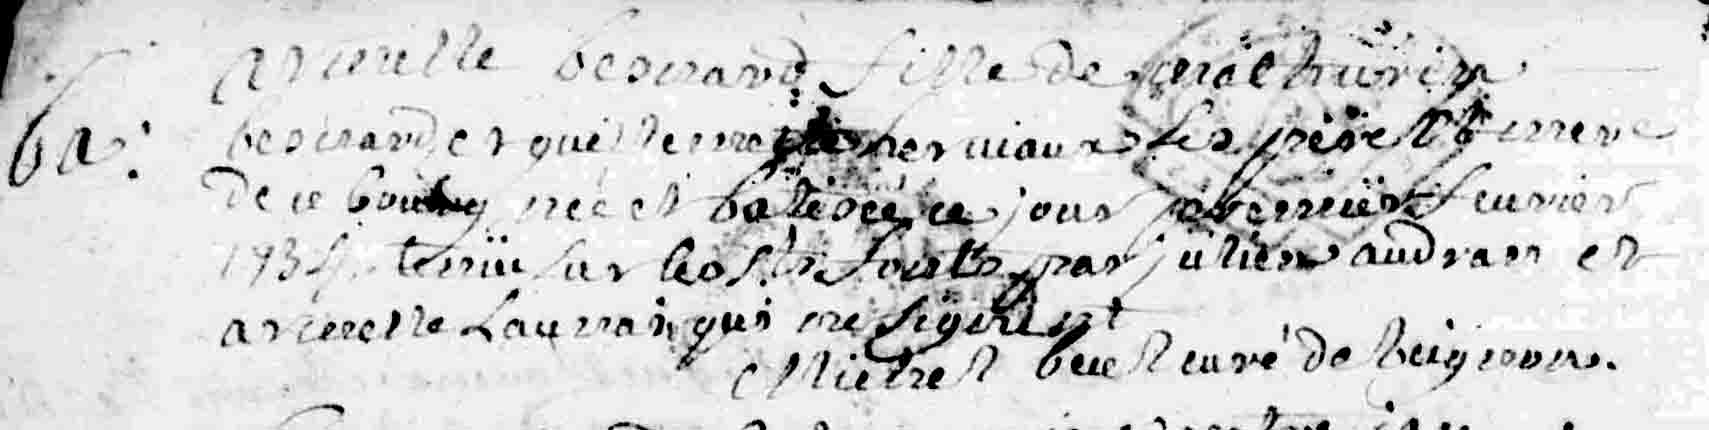 armelle besnard fille de mathurin
ba: besnard et guillemette herviaux ses père et mere
de ce bourg née et batisée ce jour premier feuvrier
1734 tenüe sur les sts fonts par julien audran et
armelle Launay qui ne signent
curé de Beignon.